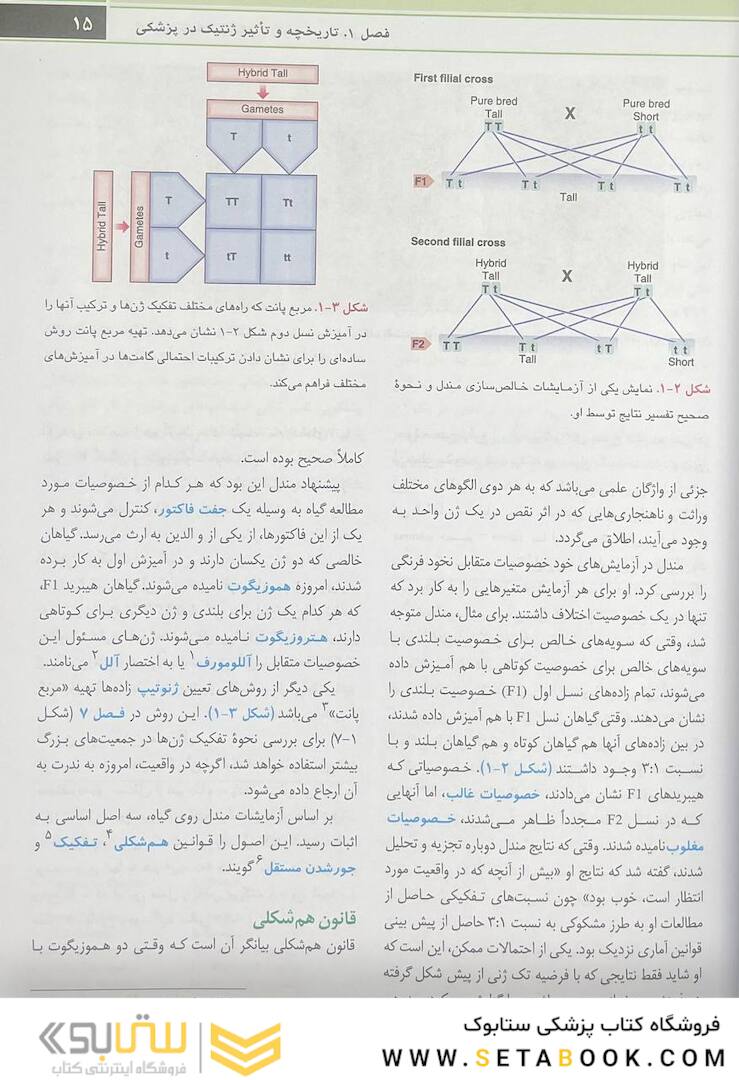 فصل ۱. تاریخچه و تأثیر ژنتیک در پزشکی
۱۵
First filial cross
Pure bred
Tall
T T
X
Pure bred
Short
t t
F1
T t
T t
T t
T t
Tall
Second filial cross
Hybrid
Tall
T t
X
Hybrid
Tall
T t
F2
T T
T t
t T
t t
Tall
Short
شکل ۲-۱. نمایش یکی از آزمایشات خالص‌سازی مندل و نحوهٔ
صحیح تفسیر نتایج توسط او.
جزئی از واژگان علمی می‌باشد که به هر دوی الگوهای مختلف
وراثت و ناهنجاری‌هایی که در اثر نقص در یک ژن واحد به
وجود می‌آیند، اطلاق می‌گردد.
مندل در آزمایش‌های خود خصوصیات متقابل نخود فرنگی
را بررسی کرد. او برای هر آزمایش متغیرهایی را به کار برد که
تنها در یک خصوصیت اختلاف داشتند. برای مثال، مندل متوجه
شد، وقتی که سویه‌های خالص برای خصوصیت بلندی با
سویه‌های خالص برای خصوصیت کوتاهی با هم آمیزش داده
می‌شوند، تمام زاده‌های نسل اول (F1) خصوصیت بلندی را
نشان می‌دهند. وقتی گیاهان نسل F1 با هم آمیزش داده شدند،
در بین زاده‌های آنها هم گیاهان کوتاه و هم گیاهان بلند و با
نسبت ۳:۱ وجود داشتند (شکل ۲-۱). خصوصیاتی که
هیبریدهای F1 نشان می‌دادند، خصوصیات غالب، اما آنهایی
که در نسل F2 مجدداً ظاهر می‌شدند، خصوصیات
مغلوب نامیده شدند. وقتی که نتایج مندل دوباره تجزیه و تحلیل
شدند، گفته شد که نتایج او «بیش از آنچه که در واقعیت مورد
انتظار است، خوب بود» چون نسبت‌های تفکیکی حاصل از
مطالعات او به طرز مشکوکی به نسبت ۳:۱ حاصل از پیش بینی
قوانین آماری نزدیک بود. یکی از احتمالات ممکن، این است که
او شاید فقط نتایجی که با فرضیه تک ژنی از پیش شکل گرفته
Hybrid Tall
Gametes
T
t
Hybrid Tall
Gametes
T
TT
Tt
t
tT
tt
شکل ۳-۱. مربع پانت که راه‌های مختلف تفکیک ژن‌ها و ترکیب آنها را
در آمیزش نسل دوم شکل ۲-۱ نشان می‌دهد. تهیه مربع پانت روش
ساده‌ای را برای نشان دادن ترکیبات احتمالی گامت‌ها در آمیزش‌های
مختلف فراهم می‌کند.
کاملاً صحیح بوده است.
پیشنهاد مندل این بود که هر کدام از خصوصیات مورد
مطالعه گیاه به وسیله یک جفت فاکتور، کنترل می‌شوند و هر
یک از این فاکتورها، از یکی از و الدین به ارث می‌رسد. گیاهان
خالصی که دو ژن یکسان دارند و در آمیزش اول به کار برده
شدند، امروزه هموزیگوت نامیده می‌شوند. گیاهان هیبرید F1،
که هر کدام یک ژن برای بلندی و ژن دیگری برای کوتاهی
دارند، هتروزیگوت نامیده می‌شوند. ژن‌های مسئول این
خصوصیات متقابل را آللومورف۱ یا به اختصار آلل۲ می‌نامند.
یکی دیگر از روش‌های تعیین ژنوتیپ زاده‌ها تهیه «مربع
پانت»۳ می‌باشد (شکل ۳-۱). این روش در فصل ۷ (شکل
۱-۷) برای بررسی نحوهٔ تفکیک ژن‌ها در جمعیت‌های بزرگ
بیشتر استفاده خواهد شد، اگرچه در واقعیت، امروزه به ندرت به
آن ارجاع داده می‌شود.
بر اساس آزمایشات مندل روی گیاه، سه اصل اساسی به
اثبات رسید. این اصول را قوانین هم‌شکلی۴، تفکیک۵ و
جورشدن مستقل۶ گویند.
قانون هم‌شکلی
قانون هم‌شکلی بیانگر آن است که وقتی دو هموزیگوت با
فروشگاه کتاب پزشکی ستابوک
WWW.SETABOOK.COM
ستابوک
فروشگاه اینترنتی کتاب